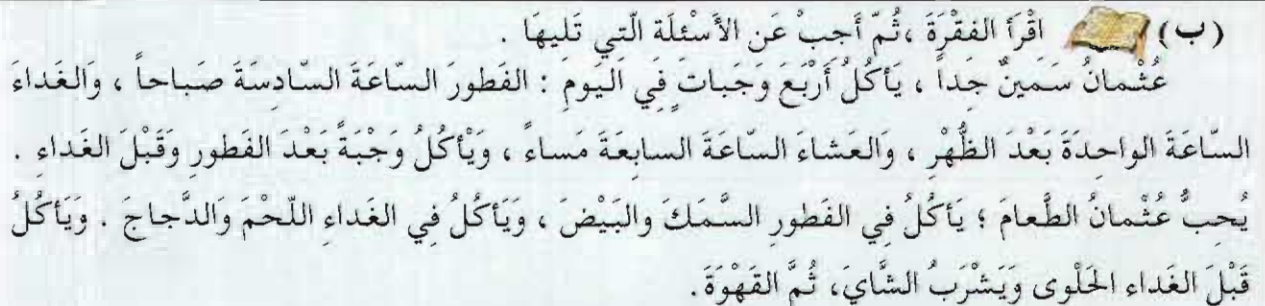 (ب) اقْرَأ الفقْرَةَ ،ثُمّ أَجِبْ عَن الأَسْئِلَة الّتي تَليهَا .
عُثْمانُ سَمينٌ جَداً ، يَأكُلُ أَرْبَعَ وَجَباتٍ فِي اَليَومَ : الفَطورَ السّاعَةَ السّادسَةَ صَباحاً ، وَالغَداءَ
السّاعَةَ الواحدَةَ بَعْدَ الظُّهْرِ ، وَالعَشاءَ السّاعَةَ السابِعَةَ مَساءً ، وَيْأكُلُ وَجْبَةً بَعْدَ الفَطورِ وَقَبْلَ الغَداءِ .
يُحبُّ عُثْمانُ الطَّعامَ ؛ يَأكُلُ في الفَطورِ السَّمَكَ والبَيْضَ ، وَيَأكُلُ في الغَداءِ اللّحْمَ وَالدَّجاجَ . وَيَأكُلُ
قَبْلَ الغَداءِ الحَلْوى وَيَشْرَبُ الشَّايَ، ثُمَّ القَهْوَةَ .